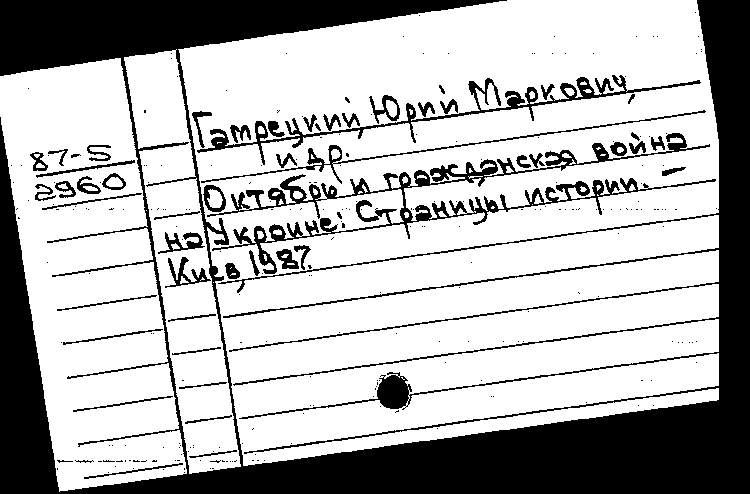 87-5
2960
Гамрецкий, Юрий Маркович,
и др.
Октябрь и гражданская война
на Украине: Страницы истории. —
Киев, 1987.